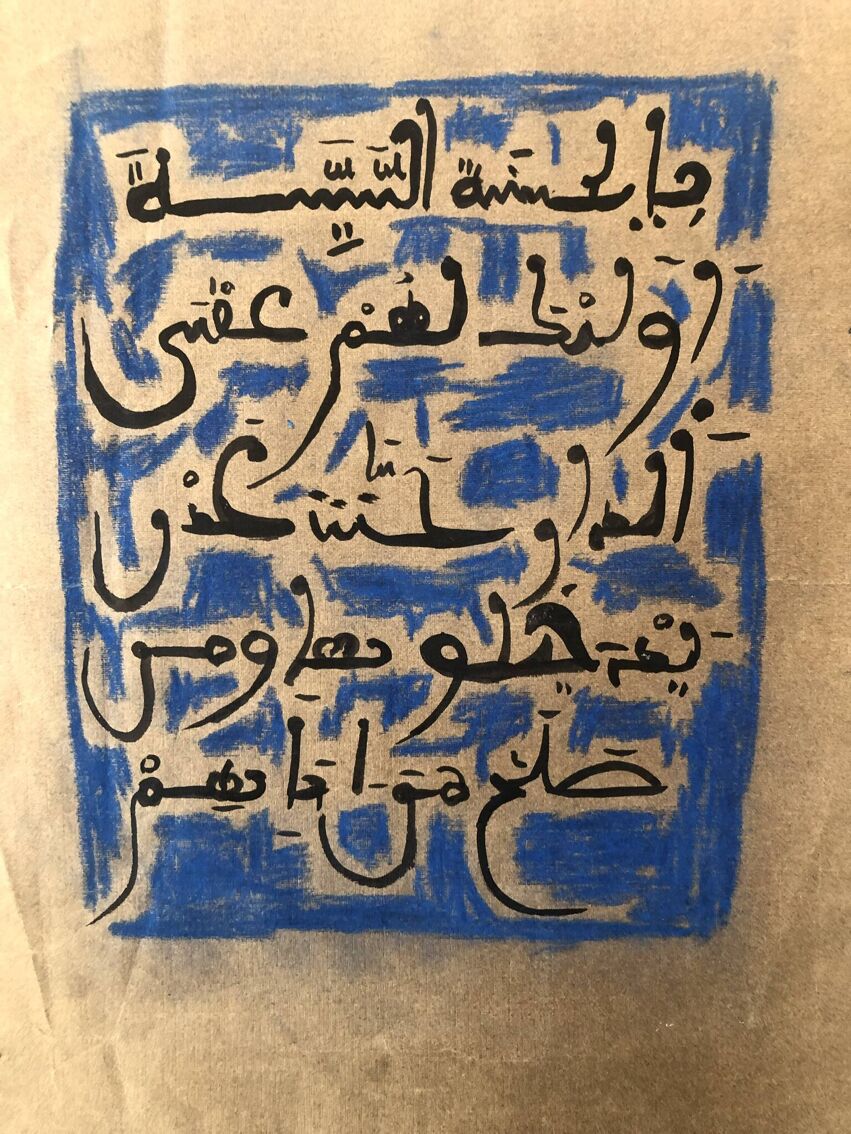 بالحسنة السَّيِّئَةَ
أَولئك لَهُمْ عقبى
الدار جَنَّت عَدْن
يَدْخلونها ومن
صَلَحَ مِنَ ابَآئِهِمْ